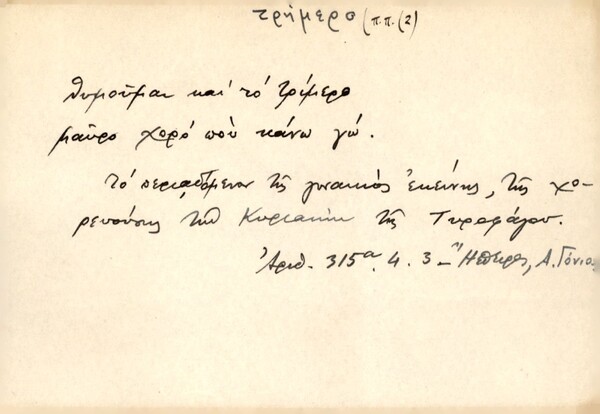 τρήμερο (π.π. (2)
θυμοῦμαι καί τό τρίμερο
μαῦρο χορό πού κάνω γώ.
Τό περιαδόμενον τῆς γυναικός ἐκείνης, τῆς χο-
ρευούσης τήν Κυριακήν τῆς Τυροφάγου.
Ἀριθ. 315α. 4. 3 – Ἤπειρος, Α. Γόνιος